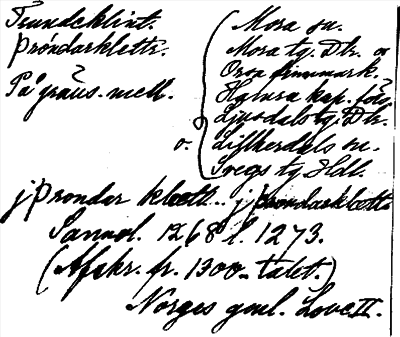 Trundeklint.
Þróndarklettr.
På gräns. mell.
Mora sn.
Mora tg. Dlr. o
Orsa finnmark.
Hglura kap. förs.
Ljusdals tg. Dlr.
o. Lillherdals sn.
Svegs tg. Hdl.
j Þrondar klœtt... j þrondarklœtt.
Sannol. 1268 l. 1273.
(Afskr. fr. 1300-talet.)
Norges gml. Love II.